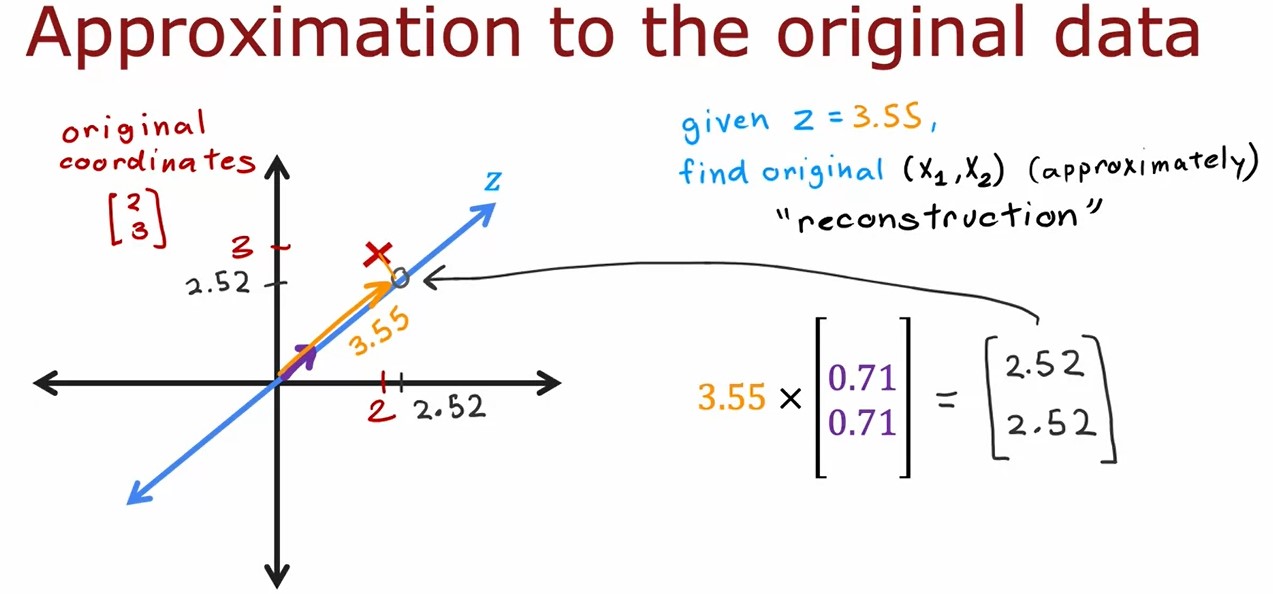 Approximation to the original data
original
coordinates
[2
3]
given z = 3.55,
find original (x₁,x₂) (approximately)
"reconstruction"
z
3
2.52
3.55
2
2.52
3.55 × [0.71
0.71] = [2.52
2.52]